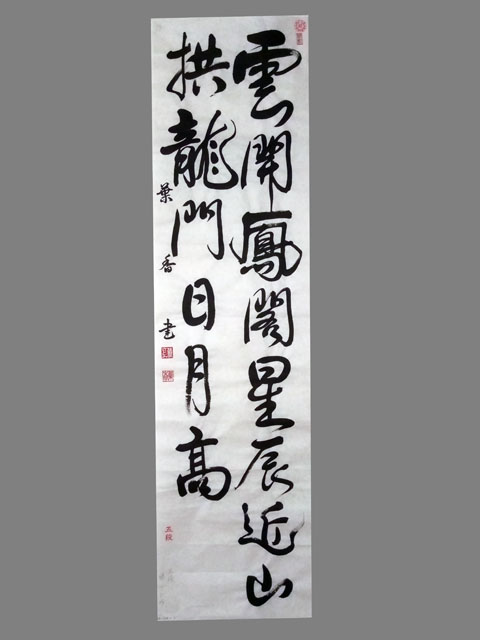 雲開鳳閣星辰近山
拱龍門日月高
葉香書
五段